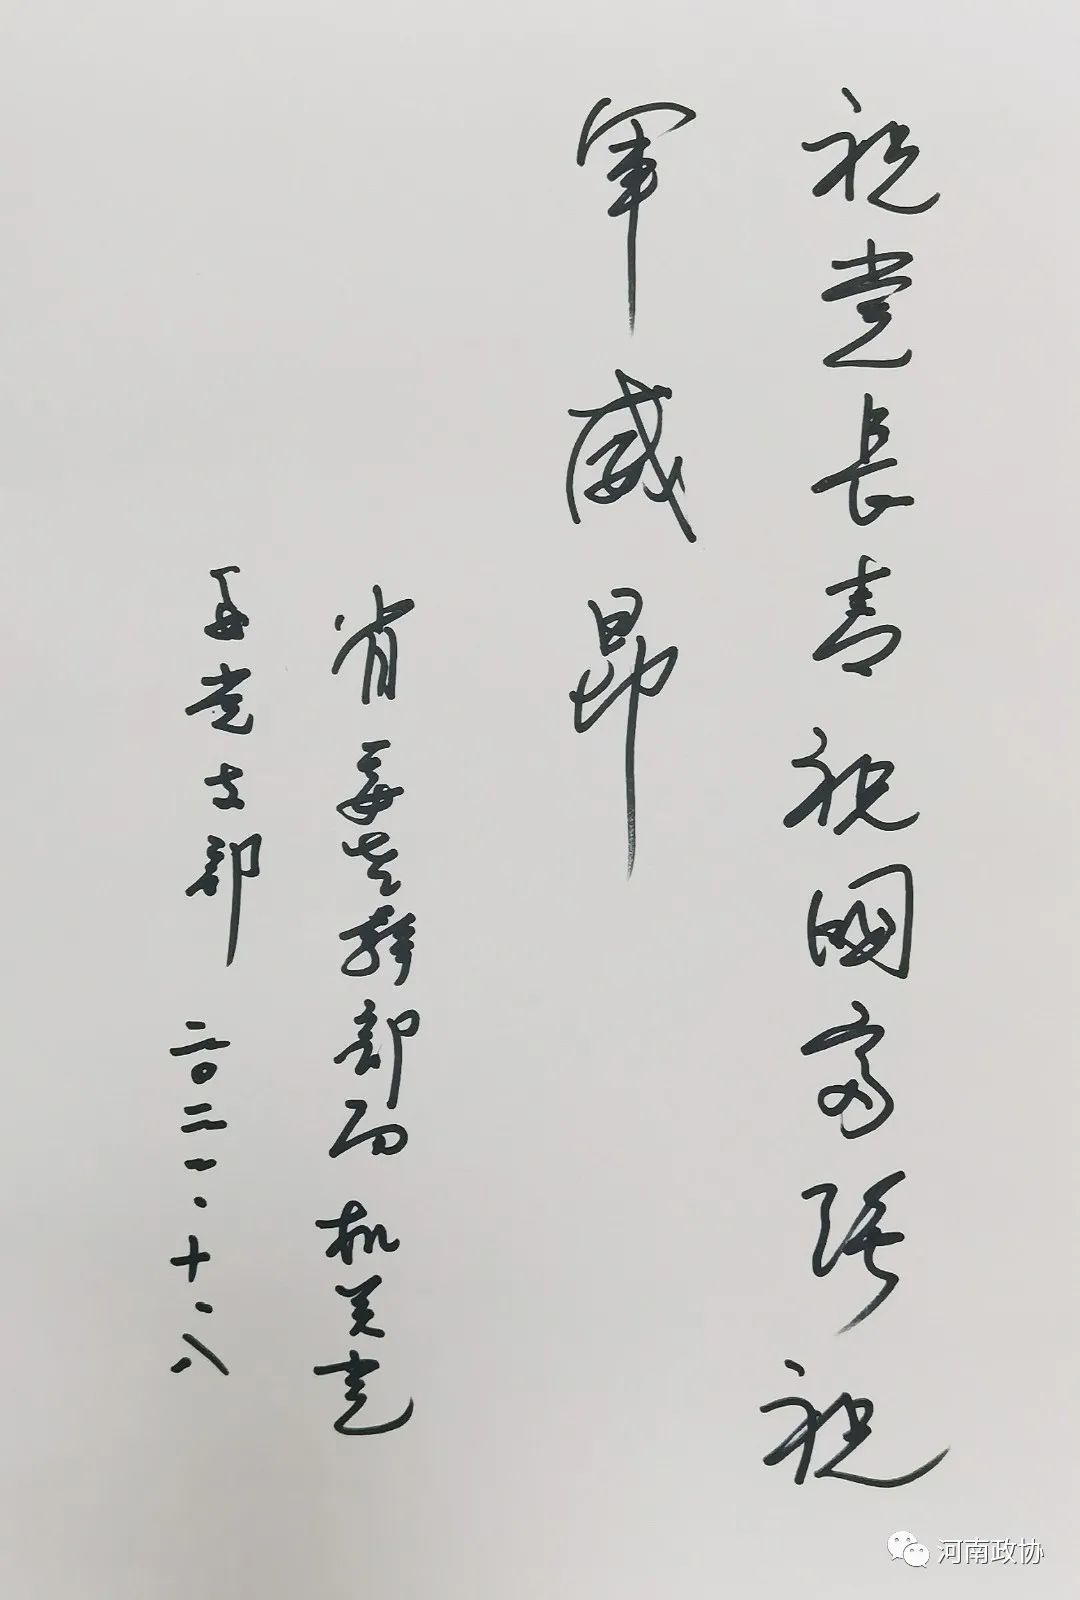 祝党長青祝國富强祝
军威昂
省委老幹部局机关党
委党支部 二〇二一.十.八
河南政协